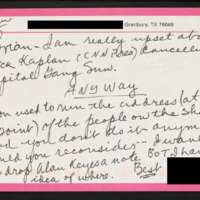 Granbury, TX 76048
Brian - I am really upset abo
ck Kaplan (CNN Pres) Cancelle
pital Gang Sun.
Any Way
you used to run the address (at
point) of the people on the sh
d you don't do it anym
ld you reconsider - I want
drop Alan Keyes a note BOT I ha
idea of where. Best